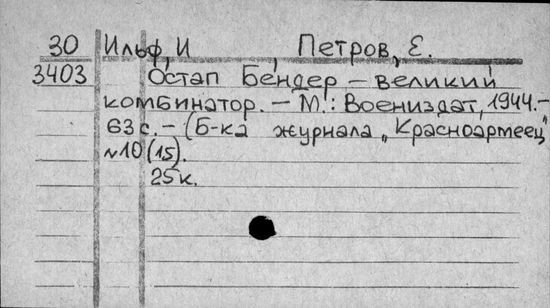 30 Ильф, И Петров, Е.
3403 Остап Бендер – великий
комбинатор. – М.: Воениздат, 1944. –
63 с. – (Б-ка журнала „Красноармеец"
№10 (15).
25 к.